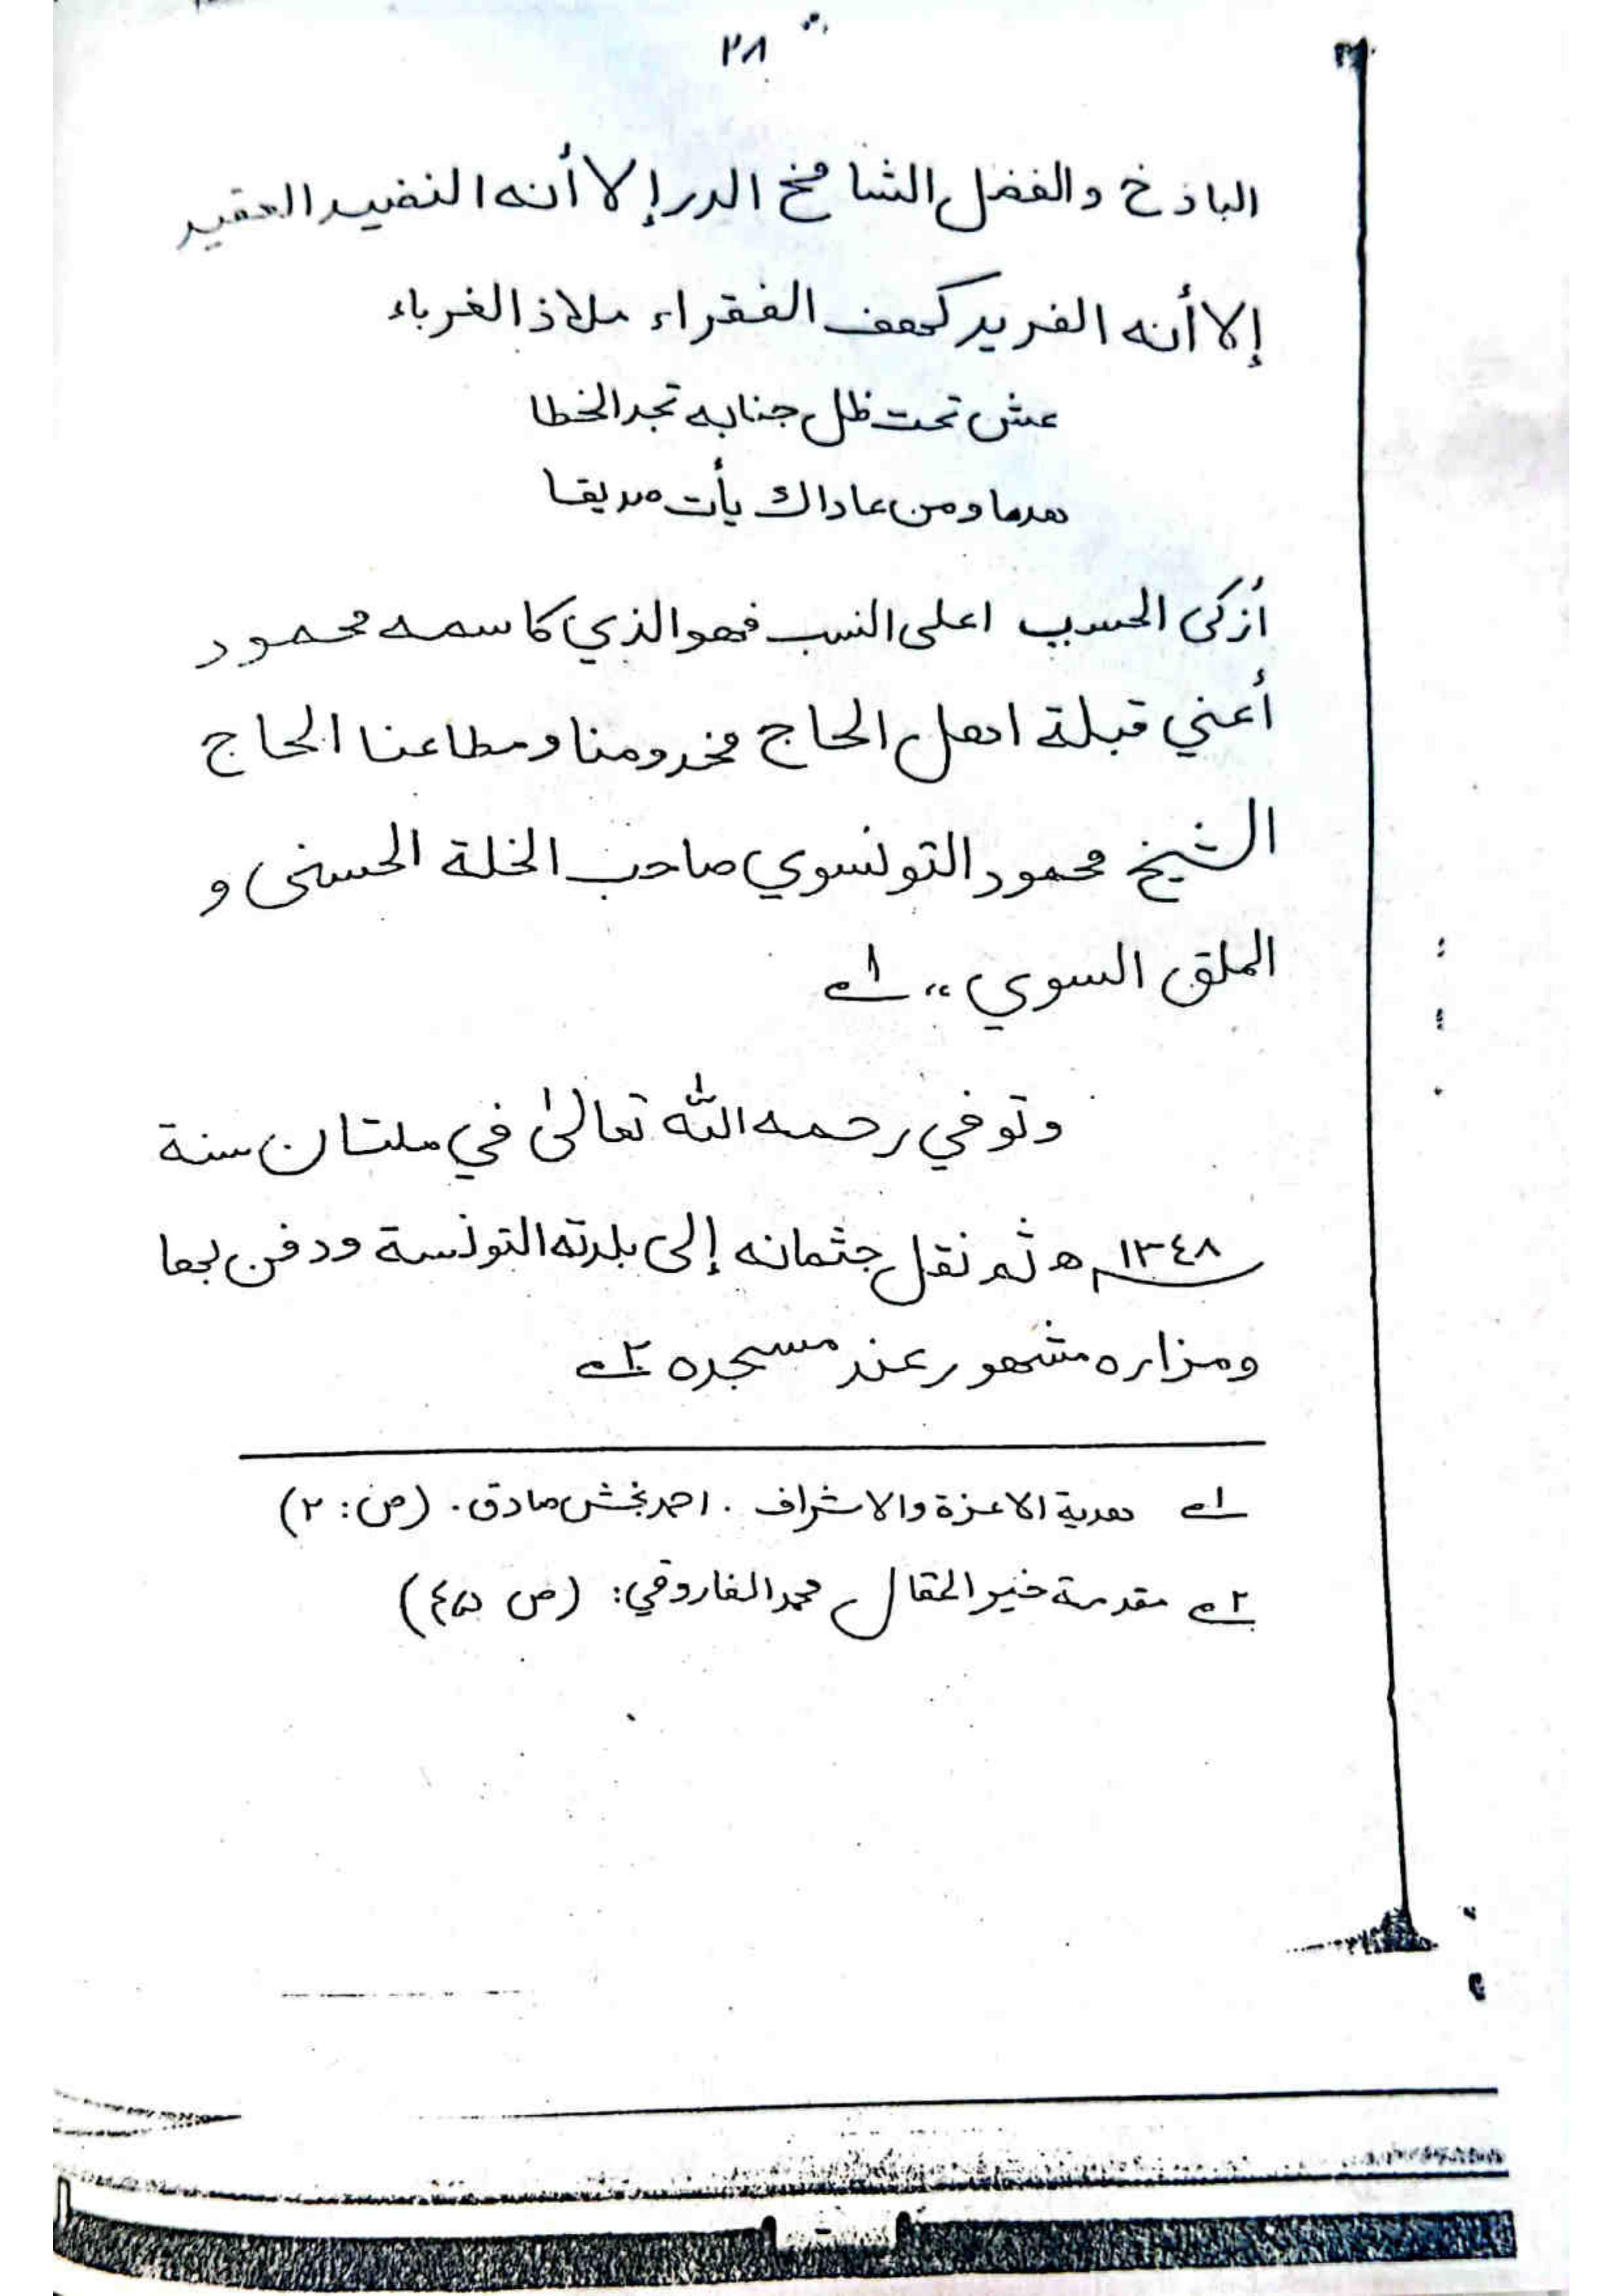 ٢٨
الباذخ والفضل الشامخ الدر إلا أنه النضيد العقير
إلا أنه الفريد كهف الفقراء ملاذ الغرباء
عش تحت ظل جنابه تجد الخطا
هدما ومن عاداك يأت صديقا
أزكى الحسب اعلى النسب فهو الذي كاسمه محمود
أعني قبلة اهل الحاج مخدومنا ومطاعنا الحاج
الشيخ محمود التونسوي صاحب الخلة الحسنى و
الملق السوي،، ١ـه
وتوفي رحمه الله تعالىٰ في ملتان سنة
١٣٤٨ هـ ثم نقل جثمانه إلى بلدته التونسة ودفن بها
ومزاره مشهور عند مسجده ٢ـه
١ـه هدية الاعزة والاشراف . احمد بخش صادق . (ص: ٢)
٢ـه مقدمة خير المقال محمد الفاروقي: (ص ٤٥)